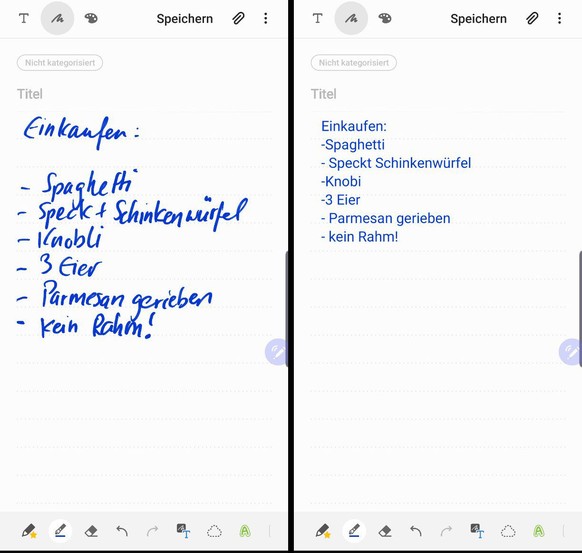 T
Speichern
Nicht kategorisiert
Titel
Einkaufen:
- Spaghetti
- Speck + Schinkenwürfel
- Knobli
- 3 Eier
- Parmesan gerieben
- kein Rahm!
T
A
T
Speichern
Nicht kategorisiert
Titel
Einkaufen:
-Spaghetti
- Speckt Schinkenwürfel
-Knobi
-3 Eier
- Parmesan gerieben
- kein Rahm!
T
A